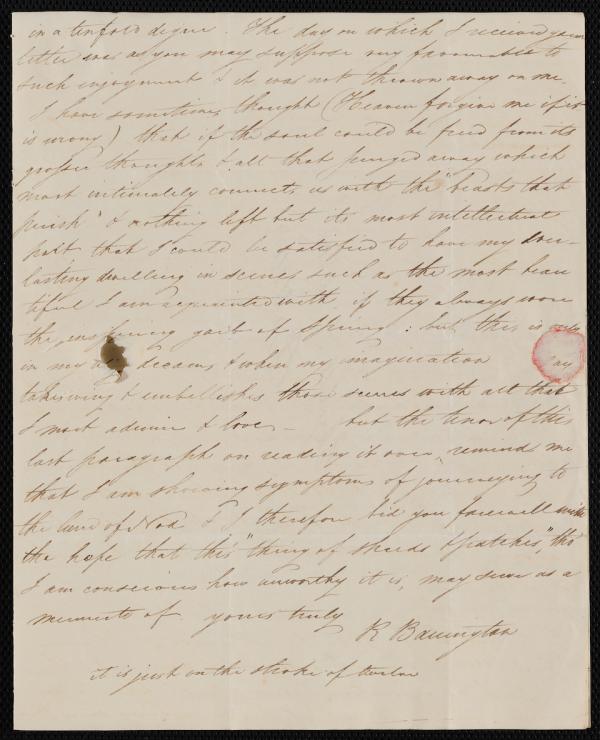 in a tenfold degree. The day on which I received your
letter was as you may suppose very favourable to
such enjoyment & it was not thrown away on me.
I have sometimes thought (Heaven forgive me if it
is wrong) that if the soul could be freed from its
grosser thoughts & all that purged away which
most intimately connects us with the "beasts that
perish" & nothing left but its most intellectual
part that I could be satisfied to have my ever-
lasting dwelling in scenes such as the most beau
tiful I am acquainted with if they always wore
the inspiring garb of Spring: but this is only
in my dreams & when my imagination
takes wing & embellishes those scenes with all that
I most admire & love, – but the tenor of this
last paragraph on reading it over, remind me
that I am shewing symptoms of journeying to
the land of Nod & I therefore bid you farewell with
the hope that this "thing of shreds & patches", tho'
I am conscious how unworthy it is, may serve as a
memento of yours truly
R Barrington
it is just on the stroke of twelve